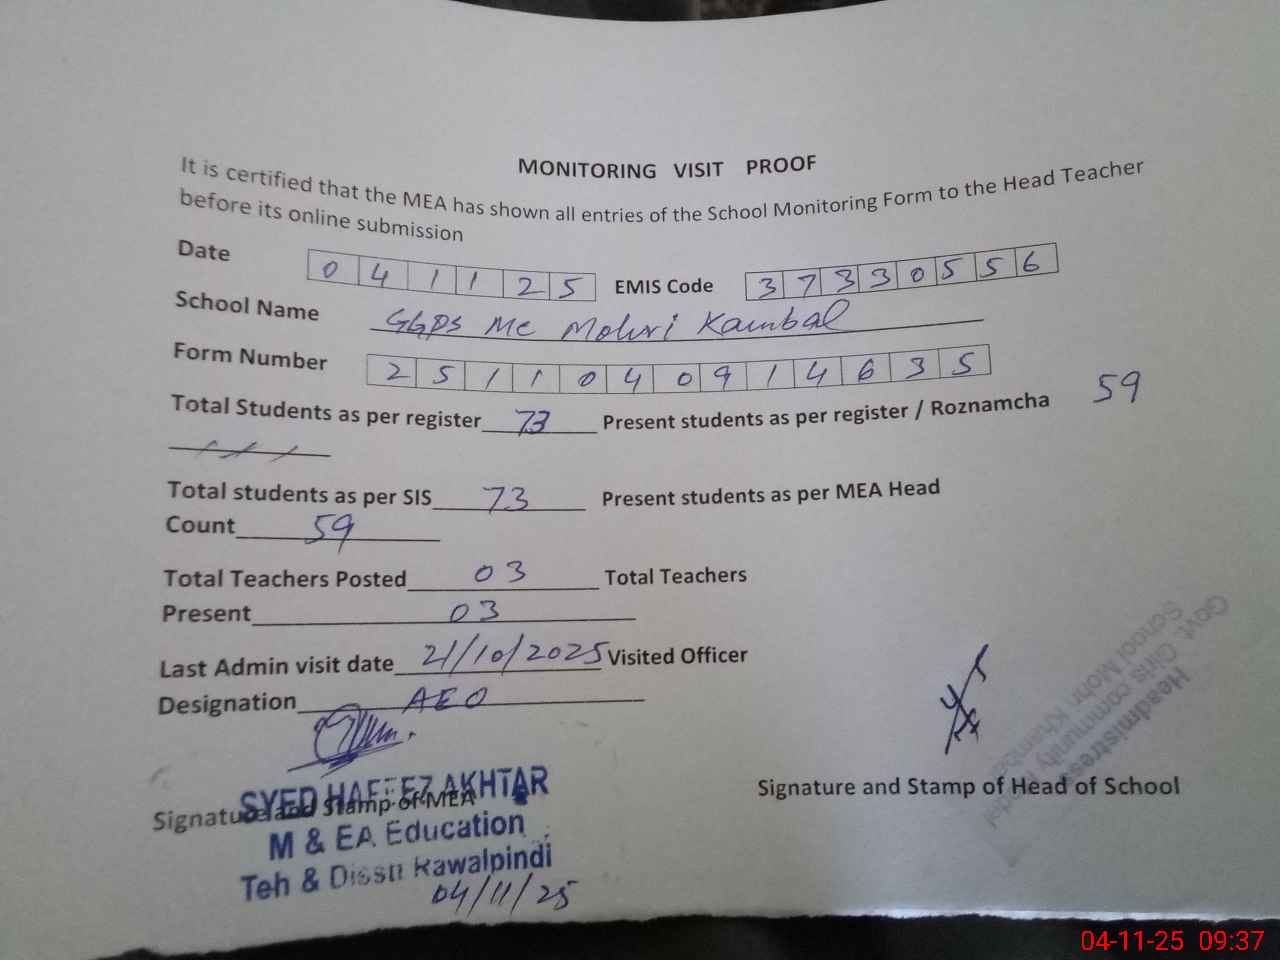 MONITORING VISIT PROOF
It is certified that the MEA has shown all entries of the School Monitoring Form to the Head Teacher
before its online submission
Date 0 4 1 1 2 5 EMIS Code 3 7 3 3 0 5 5 6
School Name GGPS MC Mohri Kambal
Form Number 2 5 1 1 0 4 0 9 1 4 6 3 5
Total Students as per register 73 Present students as per register / Roznamcha 59
Total students as per SIS 73 Present students as per MEA Head
Count 59
Total Teachers Posted 03 Total Teachers
Present 03
Last Admin visit date 21/10/2025 Visited Officer
Designation AEO
Signature and Stamp of MEA
SYED HAFEEZ AKHTAR
M & EA Education
Teh & Dissti Rawalpindi
04/11/25
Signature and Stamp of Head of School
Headmistress
Govt. Girls community Model
School Mohri
04-11-25 09:37